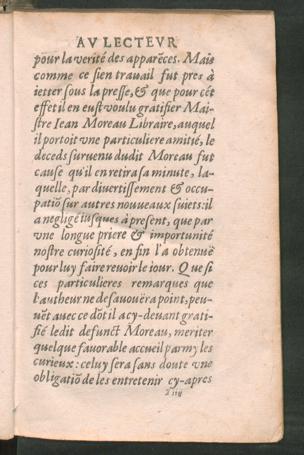 AV LECTEVR
pour la verité des apparẽces. Mais
comme ce sien trauail fut pres à
ietter sous la presse, & que pour cét
effet il en eust voulu gratifier Mai-
stre Iean Moreau Libraire, auquel
il portoit vne particuliere amitié, le
deceds suruenu dudit Moreau fut
cause qu'il en retira sa minute, la-
quelle, par diuertissement & occu-
patiõ sur autres nouueaux suiets: il
a negligé iusques à present, que par
vne longue priere & importunité
nostre curiosité, en fin l'a obtenuë
pour luy faire reuoir le iour. Que si
ces particulieres remarques que
l'autheur ne desauoüera point, peu-
uẽt auec ce dõt il a cy-deuant grati-
fié ledit defunct Moreau, meriter
quelque fauorable accueil parmy les
curieux: celuy sera sans doute vne
obligatiõ de les entretenir cy-apres
ã iiij